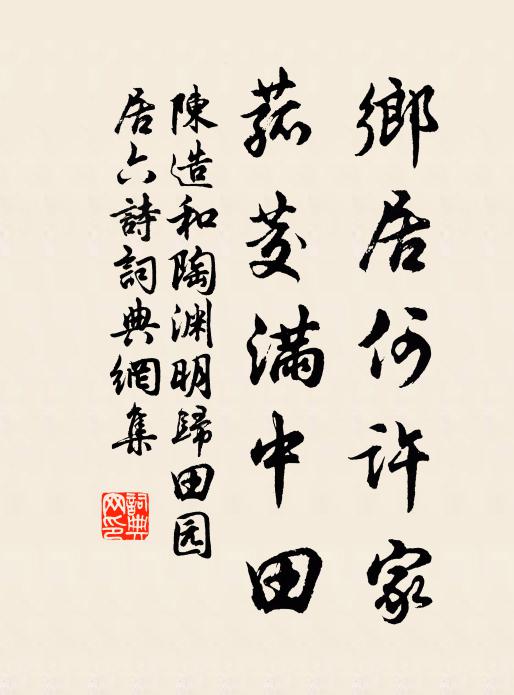 鄉居何許家
菰菱滿中田
陳造和陶渊明歸田园
居六詩詞典網集
詞典网印